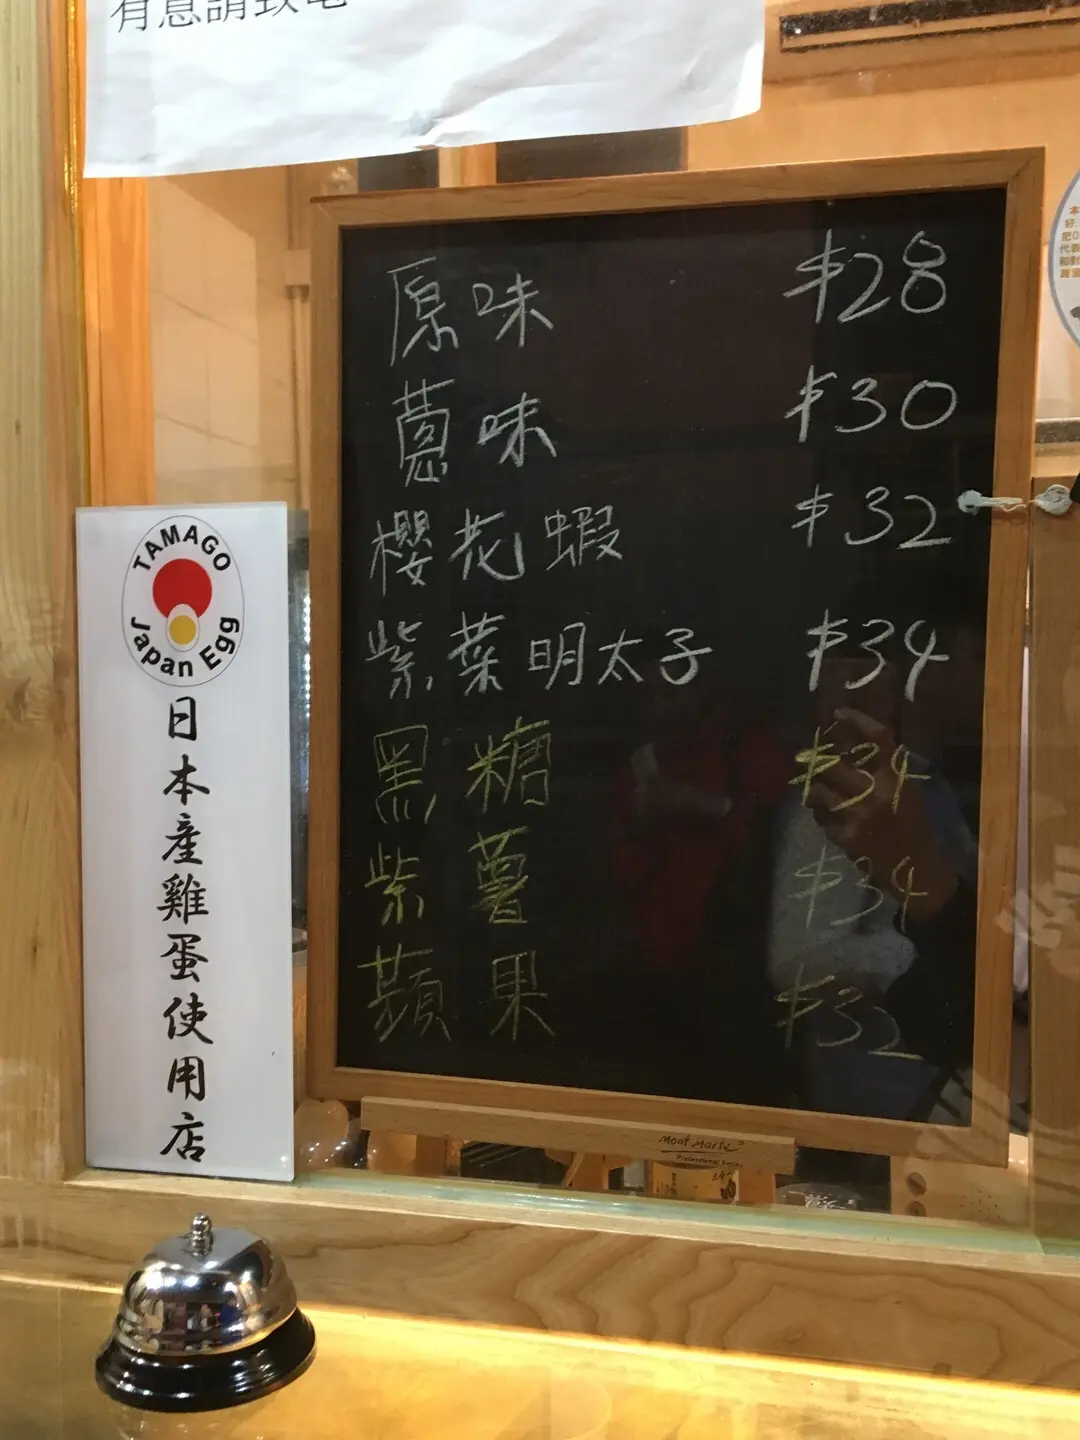 有意請致電
原味 $28
蔥味 $30
櫻花蝦 $32
紫菜明太子 $34
黑糖 $34
紫薯 $34
蘋果 $32
TAMAGO
Japan Egg
日本產雞蛋使用店
Mont Marte
Professional Series